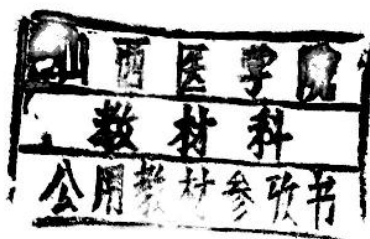 山西医学院
教材科
公用教材参攷书